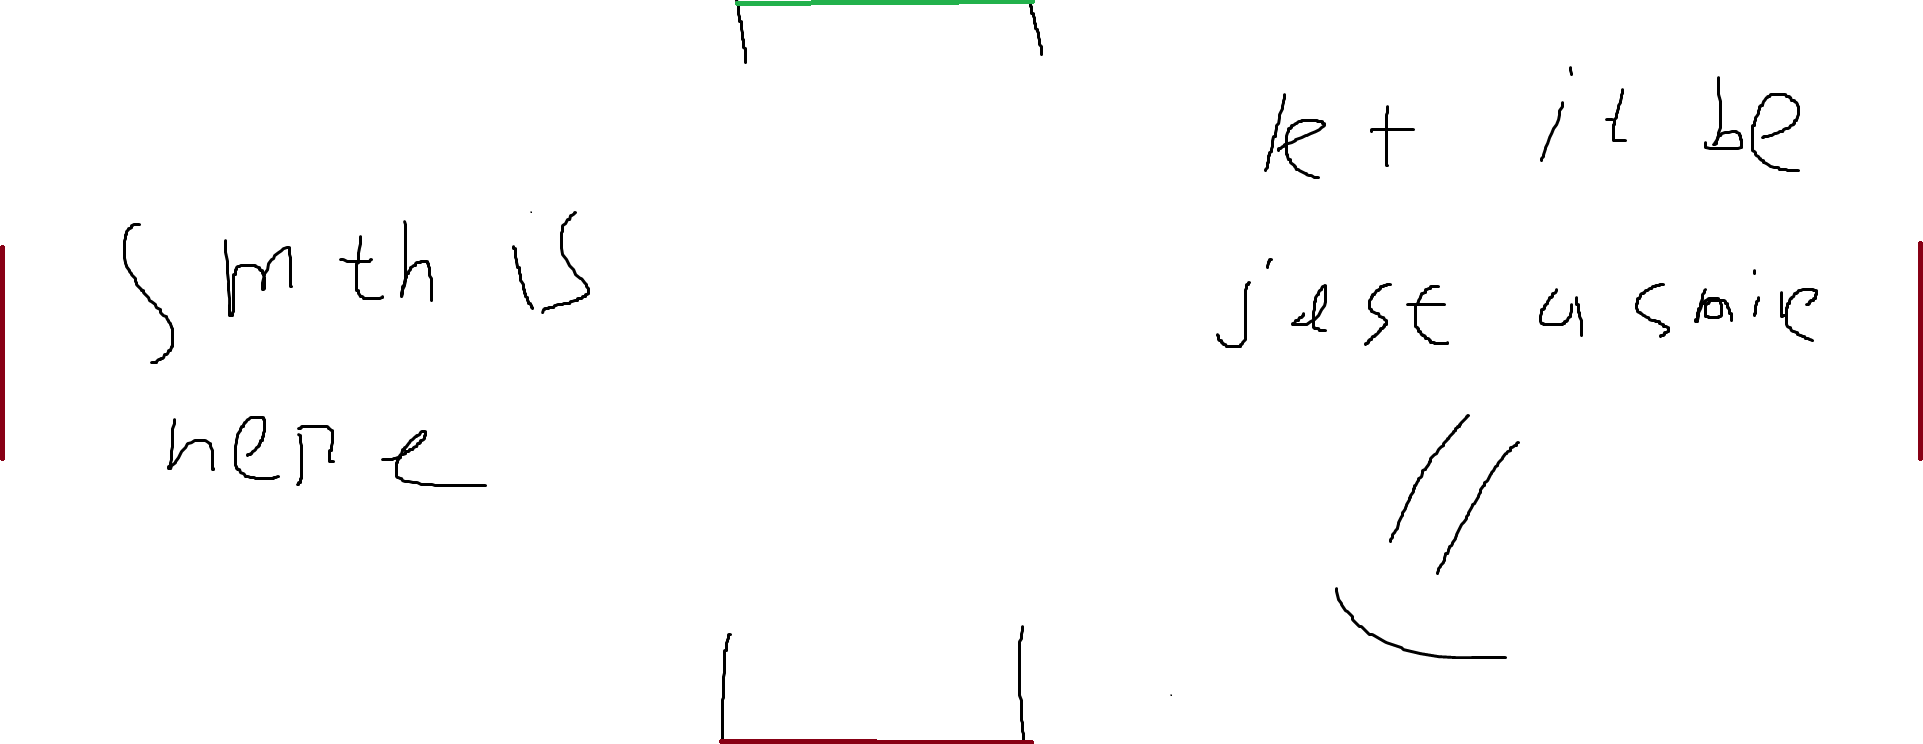 smth is
here
let it be
just a smile